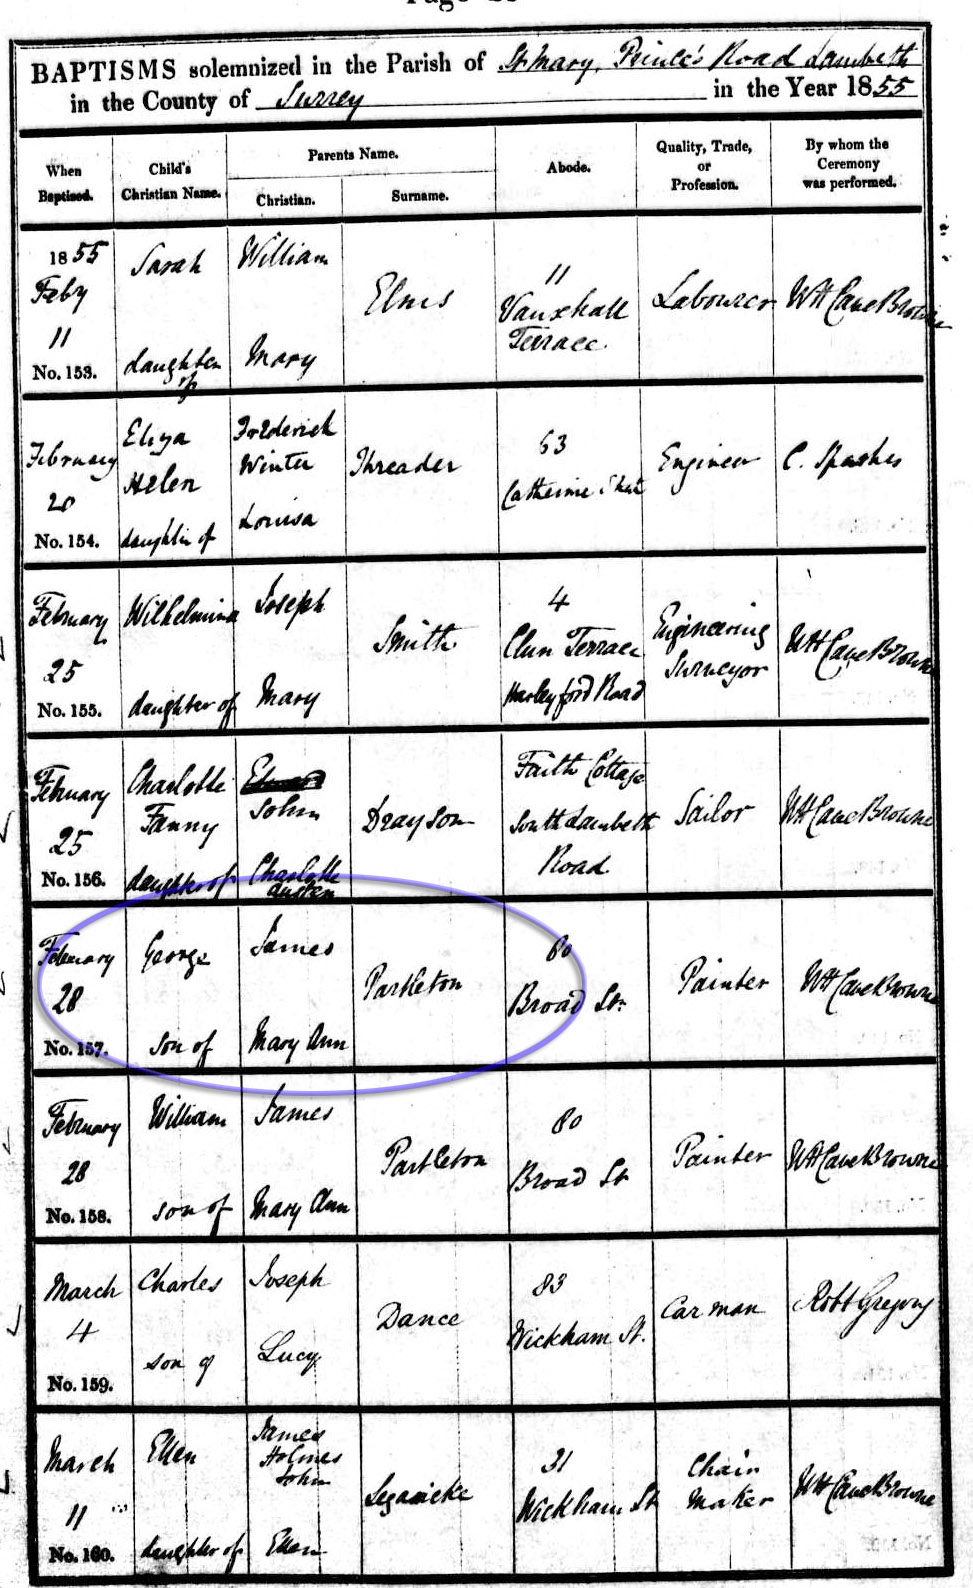 BAPTISMS solemnized in the Parish of St Mary, Prince's Road Lambeth
in the County of Surrey in the Year 1855
When Baptised.
Child's Christian Name.
Parents Name.
Christian.
Surname.
Abode.
Quality, Trade, or Profession.
By whom the Ceremony was performed.
1855
Feby
11
No. 153.
Sarah
daughter of
William
Mary
Elms
11
Vauxhall
Terrace
Labourer
WH Cave Browne
February
20
No. 154.
Eliza
Helen
daughter of
Frederick
Winter
Louisa
Threader
63
Catherine
Engineer
C. Sparkes
February
25
No. 155.
Wilhelmina
daughter of
Joseph
Mary
Smith
4
Clun Terrace
Harleyford Road
Engineering
Surveyor
WH Cave Browne
February
25
No. 156.
Charlotte
Fanny
daughter of
John
Charlotte
Austen
Drayson
Faith Cottage
South Lambeth
Road
Sailor
WH Cave Browne
February
28
No. 157.
George
son of
James
Mary Ann
Partleton
80
Broad St.
Painter
WH Cave Browne
February
28
No. 158.
William
son of
James
Mary Ann
Partleton
80
Broad St
Painter
WH Cave Browne
March
4
No. 159.
Charles
son of
Joseph
Lucy
Dance
83
Wickham St.
Carman
Robt Gregory
March
11
No. 160.
Ellen
daughter of
James
Holmes
John
Ellen
31
Wickham St
Chair
Maker
WH Cave Browne